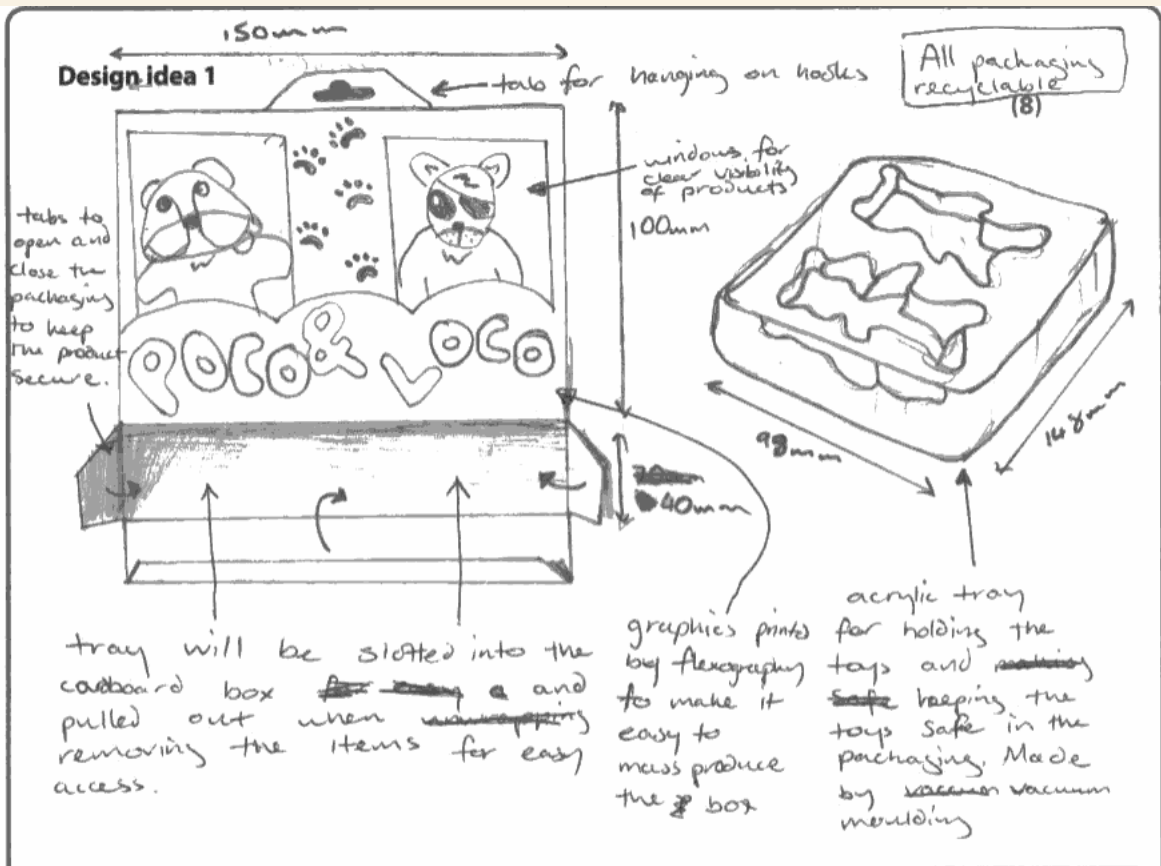 150mm
Design idea 1
tab for hanging on hooks
All packaging
recyclable
(8)
windows for
clear visibility
of products
100mm
tabs to
open and
close the
packaging
to keep
the product
secure.
POCO & LOCO
40mm
98mm
148mm
tray will be slotted into the
cardboard box and
pulled out when
removing the items for easy
access.
graphics printed
by flexography
to make it
easy to
mass produce
the box
acrylic tray
for holding the
toys and
keeping the
toys safe in the
packaging. Made
by vacuum
moulding